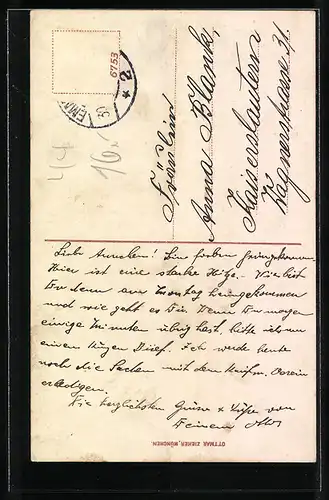 6753
Fräulein
Anna Blank,
Kaiserslautern
Wagnerstrasse 31.
4/4
16.-
Lieb Annchen! Bin soeben heimgekommen.
Hier ist eine starke Hitze. Wie bist
Du denn am Montag heimgekommen
und wie geht es Dir. Wenn Du morgen
einige Minuten übrig hast, bitte ich um
einen kurzen Brief. Ich werde heute
noch die Sachen mit dem
erledigen.
Die herzlichsten Grüsse & Küsse von
Deinem
OTTMAR ZIEHER, MÜNCHEN.